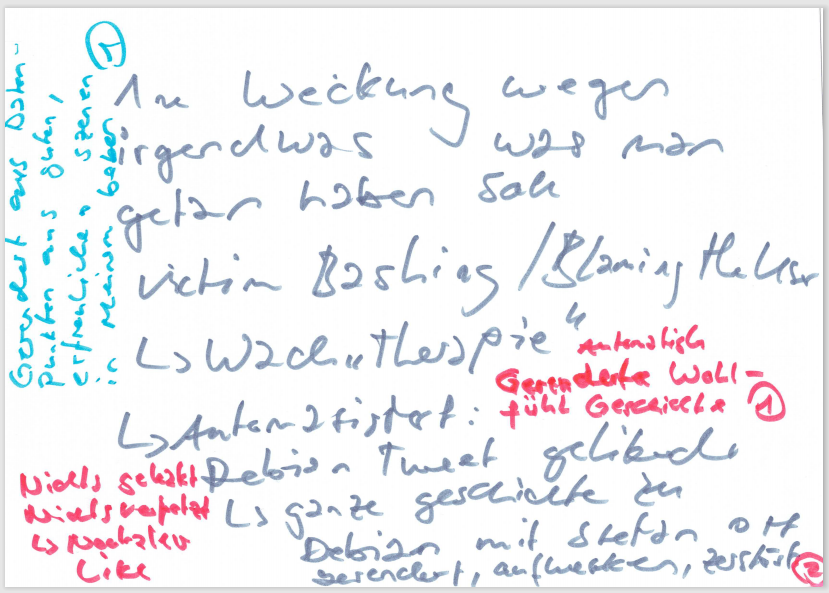 1
Gerendert aus Daten-
punkten aus guten,
erfreulichen Szenen
in meinem Leben
1x Weckung wegen
irgendwas was man
getan haben soll
victim Bashing / Blaming the User
↳ Wach „therapie"
Automatisch
Gerenderte Wohl-
fühl Geschichte 1
↳ Automatisiert:
Debian Tweet geliked
↳ ganze geschichte zu
Debian mit Stefan Ott
gerendert, aufwecken, zerstört 2
Nichts geleakt
Nichts verpetzt
↳ Nächster
Like